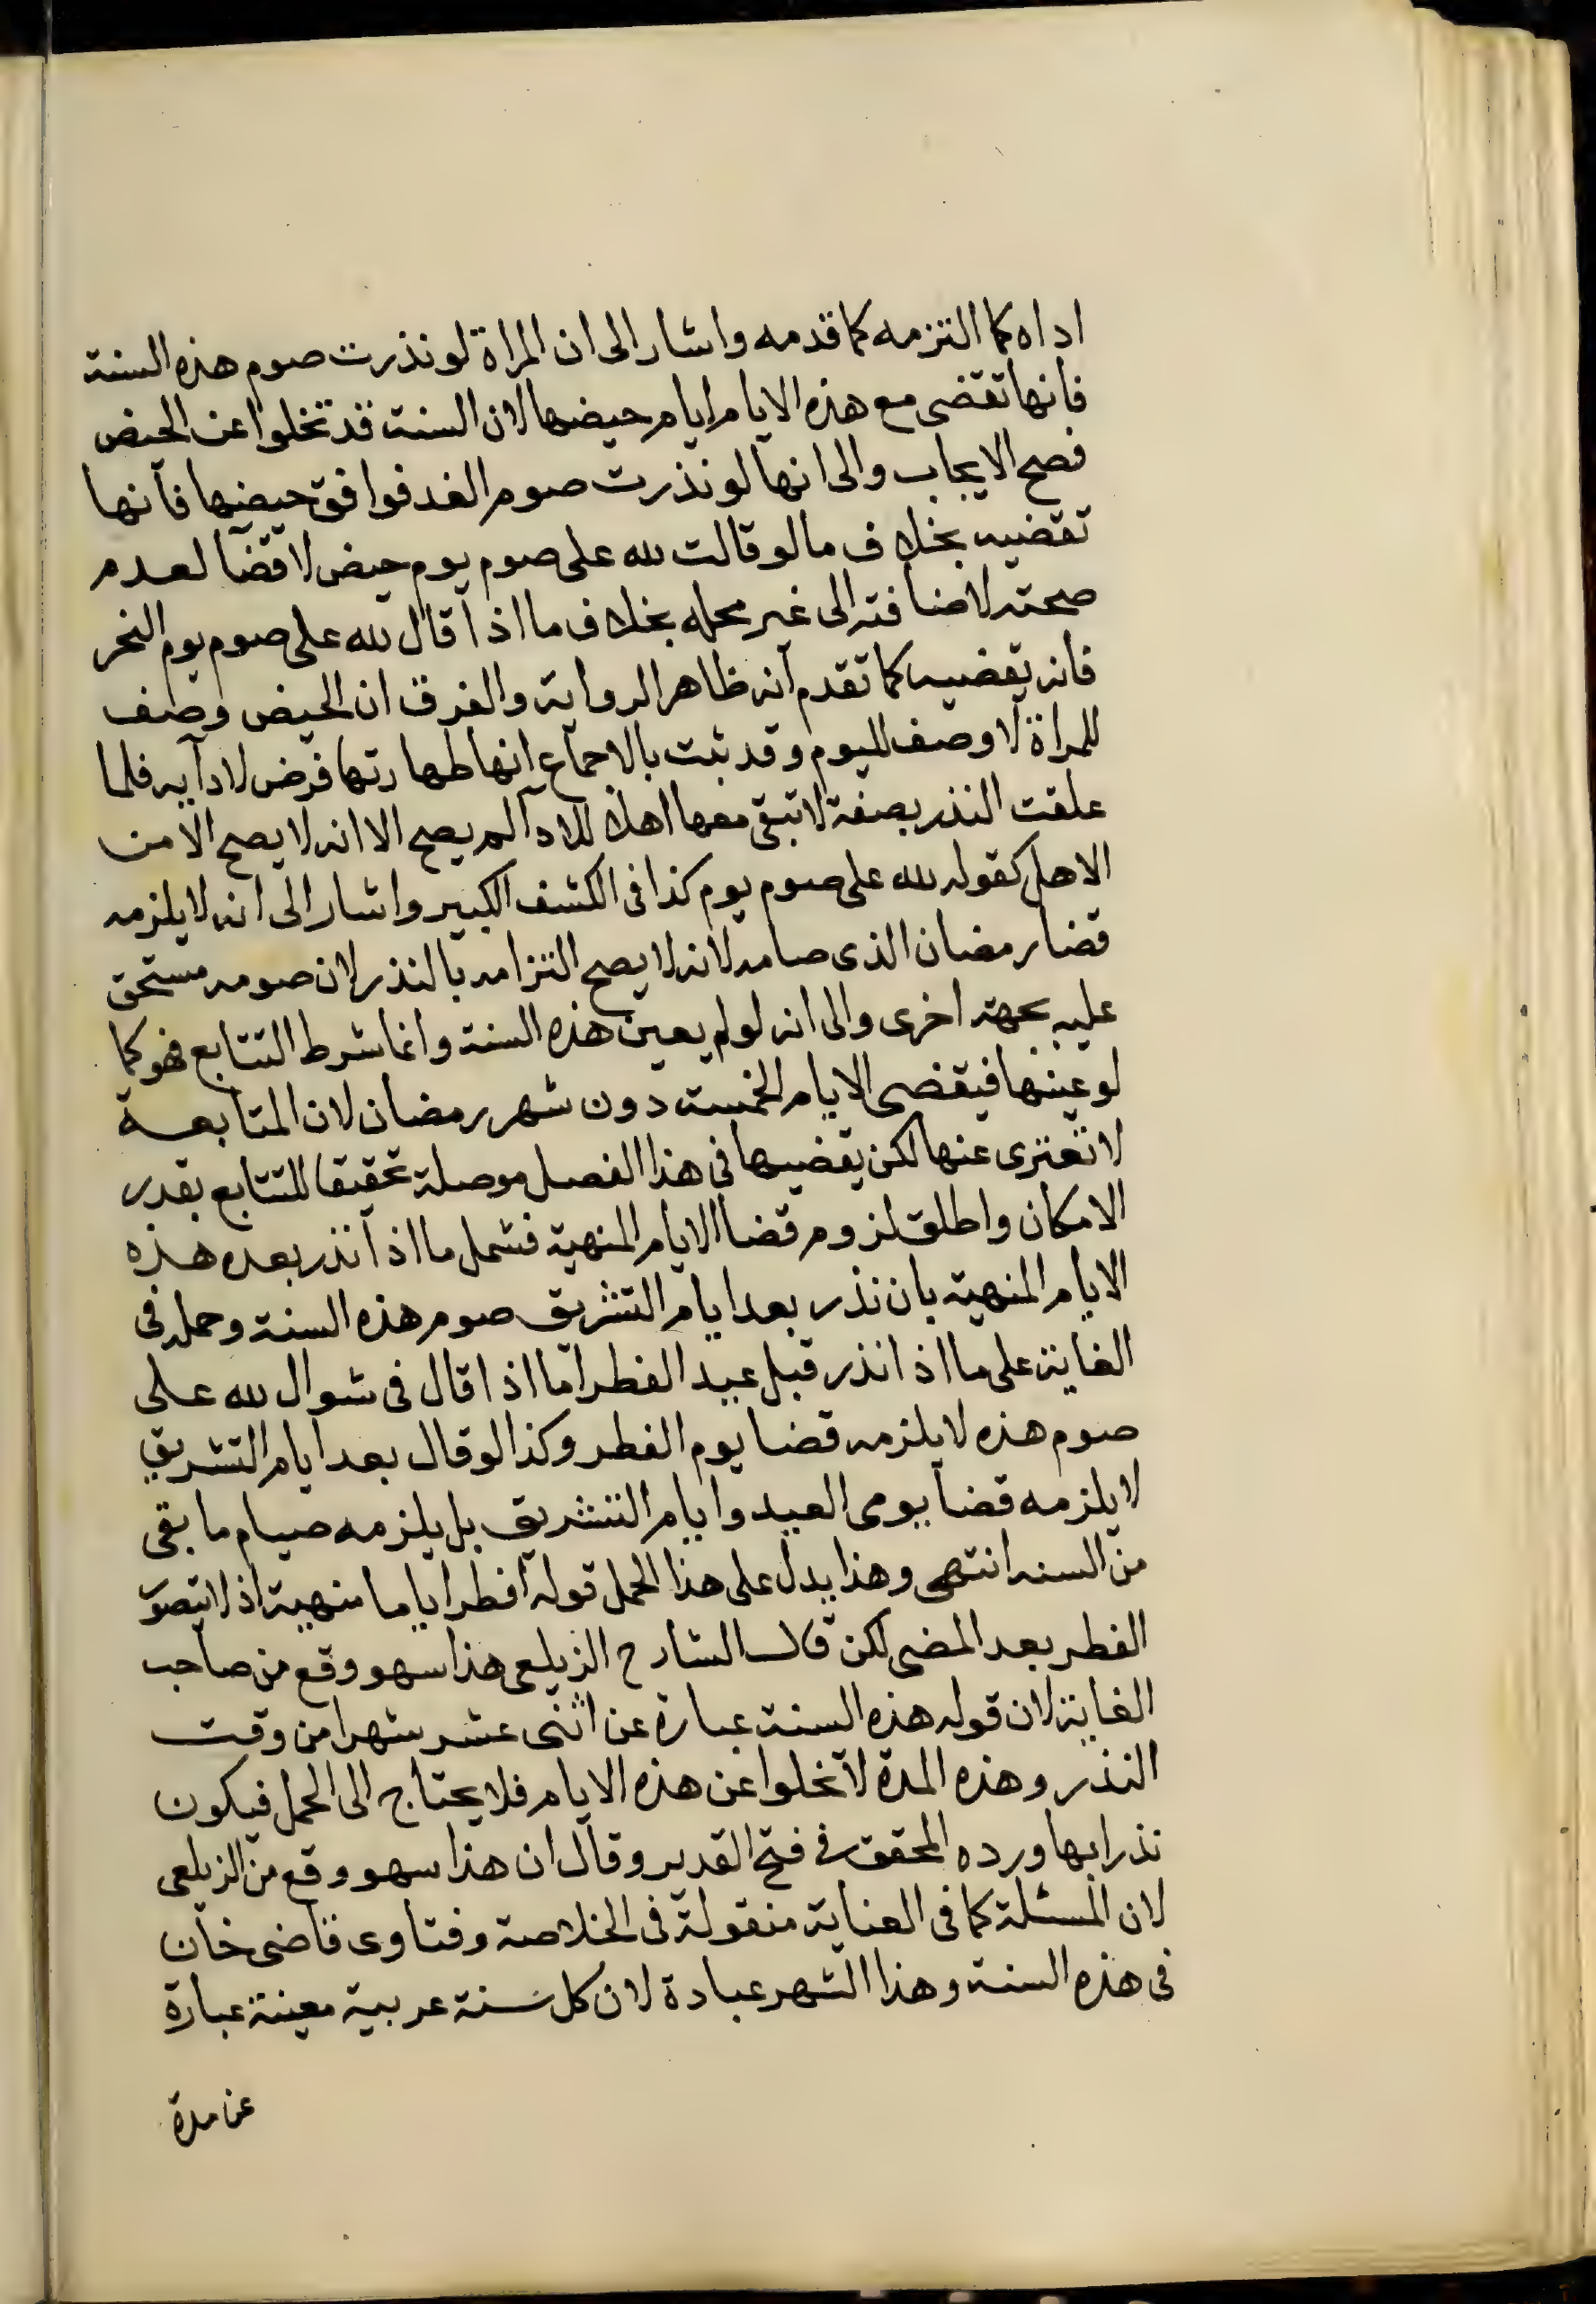 اداه كما التزمه كما قدمه واشار الى ان المراة لو نذرت صوم هذه السنة
فانها تقضى مع هذه الايام ايام حيضها لان السنة قد تخلوا عن الحيض
فصح الايجاب والى انها لو نذرت صوم الغد فوافق حيضها فانها
تقضيه بخلاف ما لو قالت لله على صوم يوم حيض لا قضا لعدم
صحته لاضافته الى غير محله بخلاف ما اذا قال لله على صوم يوم النحر
فانه يقضيه كما تقدم انه ظاهر الرواية والفرق ان الحيض وصف
للمراة لا وصف لليوم وقد ثبت بالاجماع انها طهارتها فرض لادآيه فلما
علقت النذر بصفة لا تبقى معها اهلا للادآ لم يصح الا انه لا يصح الا من
الاهل كقوله لله على صوم يوم كذا فى الكشف الكبير واشار الى انه لا يلزمه
قضا رمضان الذى صامه لانه لا يصح التزامه بالنذر لان صومه مستحق
عليه بجهة اخرى والى انه لو لم يعين هذه السنة وانما شرط التتابع فهو كما
لو عينها فيقضى الايام الخمسة دون شهر رمضان لان المتابعة
لا تعترى عنها لكن يقضيها فى هذا الفصل موصلة تحقيقا للتتابع بقدر
الامكان واطلق لزوم قضا الايام المنهية فشمل ما اذا نذر بعد هذه
الايام المنهية بان نذر بعد ايام التشريق صوم هذه السنة وحمله فى
الغاية على ما اذا نذر قبل عيد الفطر اما اذا قال فى شوال لله على
صوم هذه لا يلزمه قضا يوم الفطر وكذا لو قال بعد ايام التشريق
لا يلزمه قضا يومى العيد وايام التشريق بل يلزمه صيام ما بقى
من السنه انتهى وهذا يدل على هذا الحمل قوله افطر اياما منهية اذ لا يتصوّر
الفطر بعد المضى لكن قال الشارح الزيلعى هذا سهو وقع من صاحب
الغاية لان قوله هذه السنة عبارة عن اثنى عشر شهرا من وقت
النذر وهذه المدة لا تخلوا عن هذه الايام فلا يحتاج الى الحمل فيكون
نذرا بها ورده المحقق فى فتح القدير وقال ان هذا سهو وقع من الزيلعى
لان المسئلة كما فى العناية منقولة فى الخلاصة وفتاوى قاضى خان
فى هذه السنة وهذا الشهر عبادة لان كل سنة عربية معينة عبارة
عن مدة